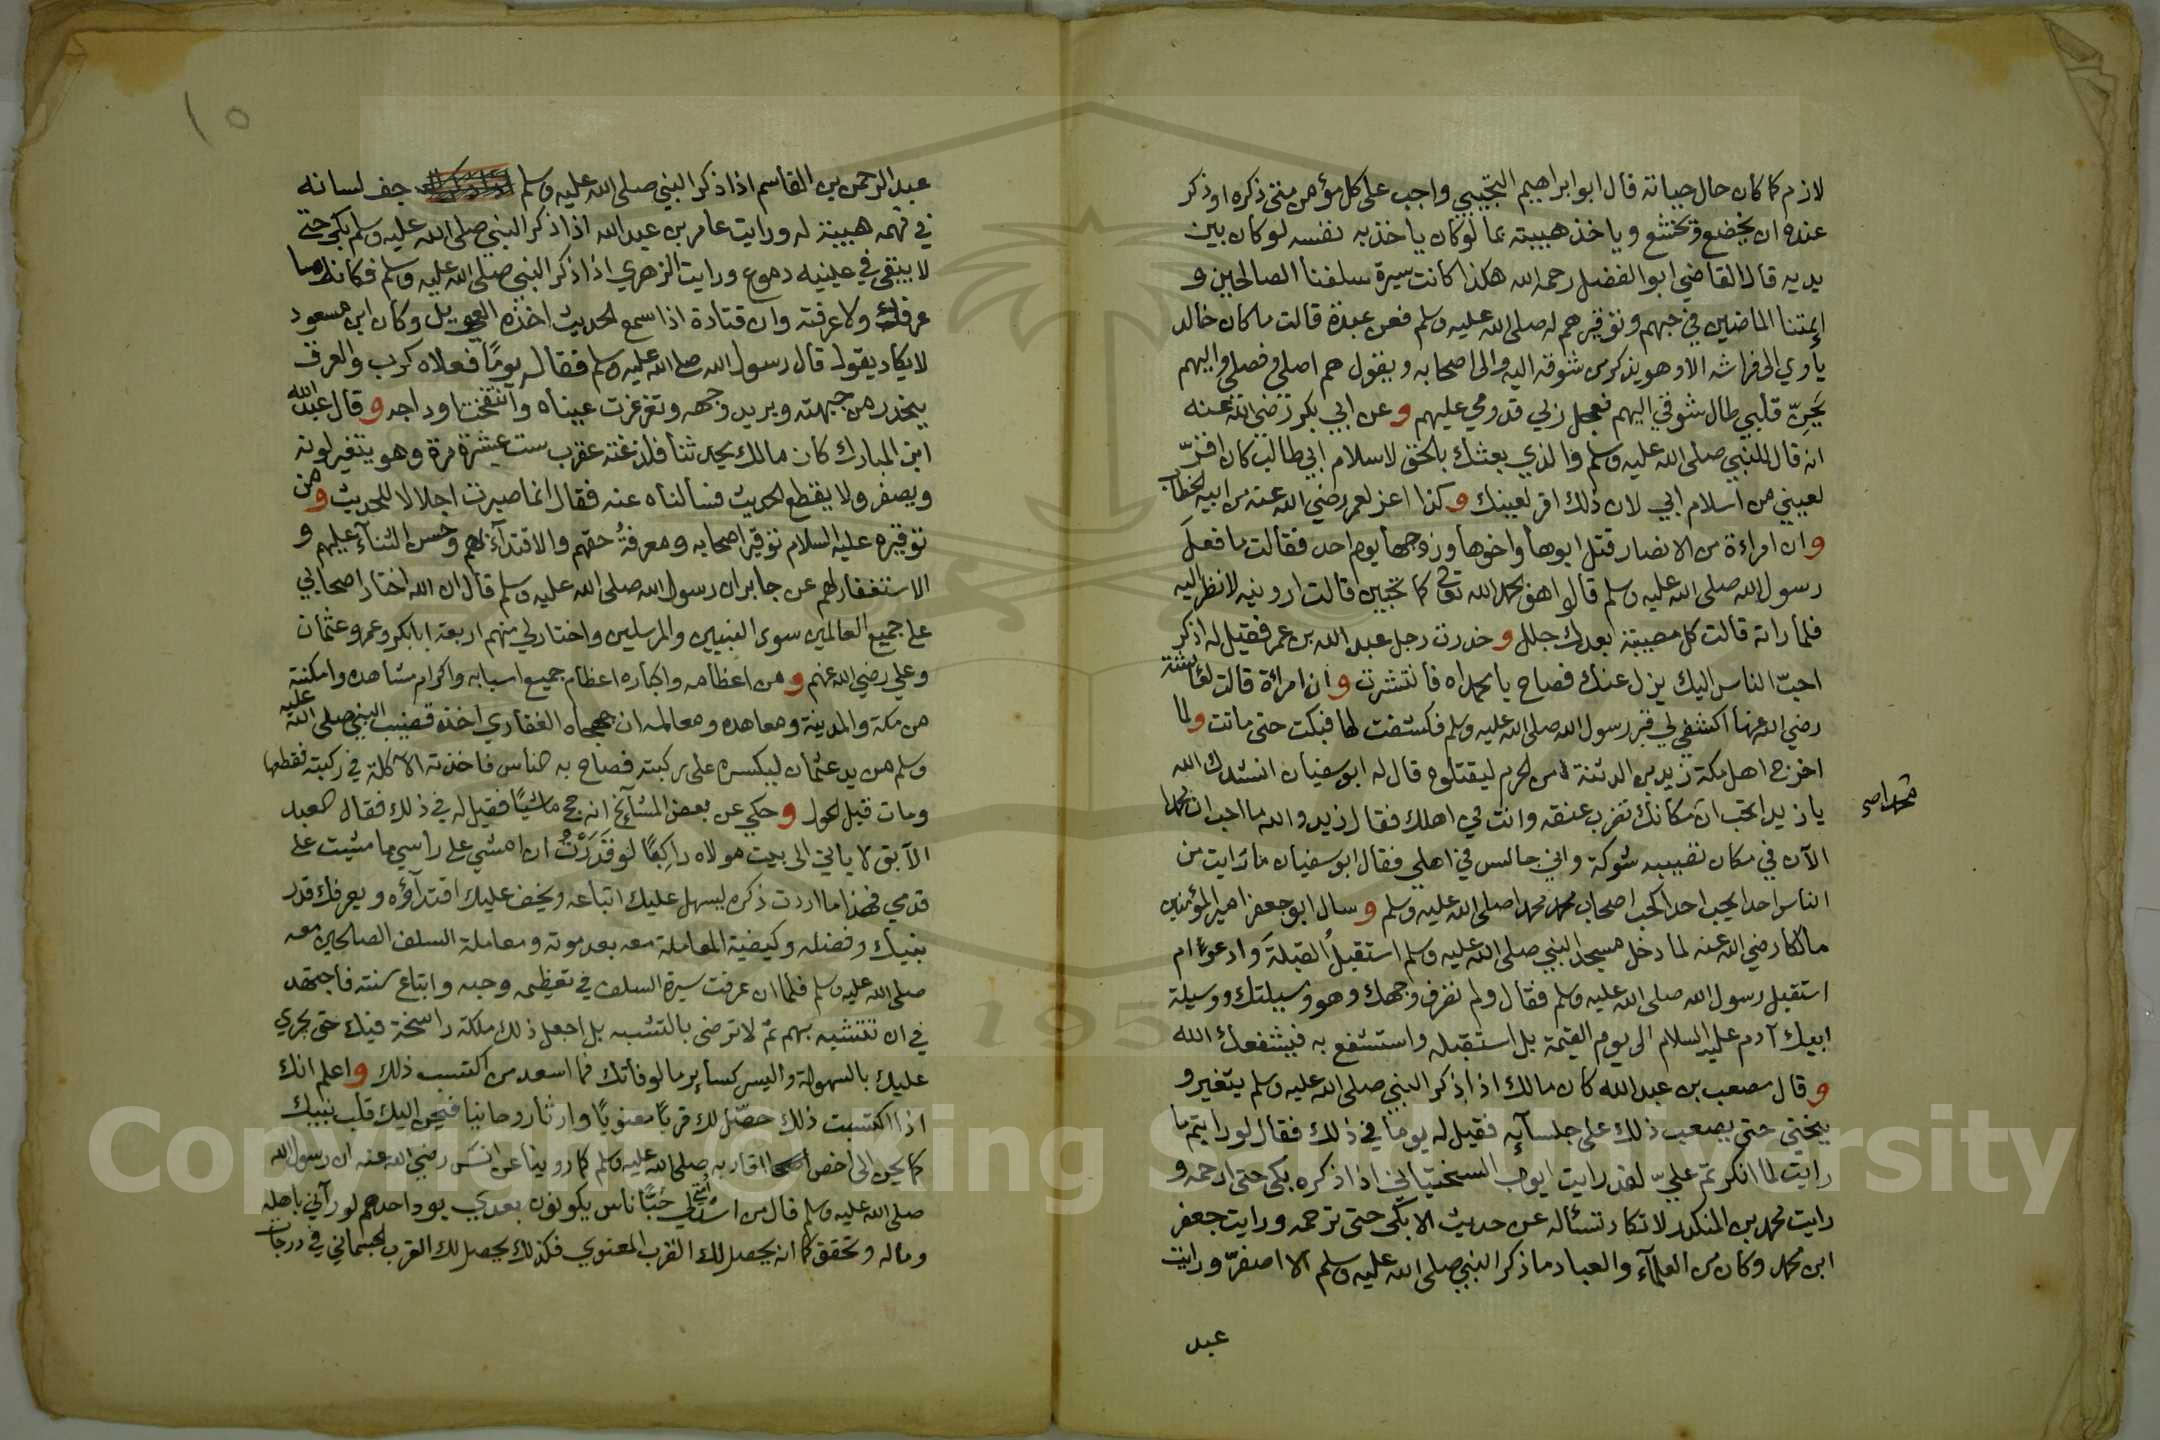 لازم كما كان حال حياته قال ابو ابراهيم التجيبي واجب على كل مؤمن متى ذكره او ذكر
عنده ان يخضع ويخشع وياخذ هيبته بما لو كان ياخذ به نفسه لو كان بين
يديه قال القاضي ابو الفضل رحمه الله هكذا كانت سيرة سلفنا الصالحين و
ايمتنا الماضين في حبهم وتوقيرهم له صلى الله عليه وسلم فعن عبدة قالت ما كان خالد
يأوي الى فراشه الا وهو يذكر من شوقه اليه والى اصحابه ويقول هم اصلي وفصلي واليهم
يحن قلبي طال شوقي اليهم فعجل ربي قدومي عليهم و عن ابي بكر رضي الله عنه
انه قال للنبي صلى الله عليه وسلم والذي بعثك بالحق لاسلام ابي طالب كان اقر
لعيني من اسلام ابي لان ذلك اقر لعينك و كذا اعز لعمر رضي الله عنه من ابيه الخطاب
و ان امراءة من الانصار قتل ابوها واخوها وزوجها يوم احد فقالت ما فعل
رسول الله صلى الله عليه وسلم قالوا هو بحمد الله تعالى كما تحبين قالت ارونيه لانظر اليه
فلما راته قالت كل مصيبة بعدك جلل و خدرت رجل عبد الله بن عمر فقيل له اذكر
احب الناس اليك يزل عنك فصاح يا محمداه فانتشرت و ان امراة قالت لعائشة
رضي الله عنها اكشفي لي قبر رسول الله صلى الله عليه وسلم فكشفت لها فبكت حتى ماتت و لما
اخرج اهل مكة زيد بن الدثنة من الحرم ليقتلوه قال له ابو سفيان انشدك الله
يا زيد اتحب ان مكانك تضرب عنقه وانت في اهلك فقال زيد والله ما احب ان محمدا
الآن في مكان تصيبه شوكة واني جالس في اهلي فقال ابو سفيان ما رايت من
الناس احدا يحب احدا كحب اصحاب محمد محمدا صلى الله عليه وسلم و سال ابو جعفر امير المؤمنين
مالكا رضي الله عنه لما دخل مسجد النبي صلى الله عليه وسلم استقبل القبلة وادعوا ام
استقبل رسول الله صلى الله عليه وسلم فقال ولم تصرف وجهك وهو وسيلتك ووسيلة
ابيك آدم عليه السلام الى يوم القيمة بل استقبله واستشفع به فيشفعك الله
و قال مصعب بن عبد الله كان مالك اذا ذكر النبي صلى الله عليه وسلم يتغير و
ينحني حتى يصعب ذلك على جلسآيه فقيل له يوما في ذلك فقال لو رايتم ما
رايت لما انكرتم علي لقد رايت ايوب السختياني اذا ذكره بكى حتى ارحمه و
رايت محمد بن المنكدر لا تكاد تسئاله عن حديث الا بكى حتى ترحمه ورايت جعفر
ابن محمد وكان من العلمآء والعباد ما ذكر النبي صلى الله عليه وسلم الا اصفر ورايت
عبد
١٥
عبد الرحمن بن القاسم اذا ذكر النبي صلى الله عليه وسلم جف لسانه
في فمه هيبة له ورايت عامر بن عبد الله اذا ذكر النبي صلى الله عليه وسلم بكى حتى
لا يبقى في عينيه دموع ورايت الزهري اذا ذكر النبي صلى الله عليه وسلم فكانه ما
عرفك ولا عرفته وان قتادة اذا سمع الحديث اخذه العويل وكان ابن مسعود
لا يكاد يقول قال رسول الله صلى الله عليه وسلم فقال يوما فعلاه كرب والعرق
يتحدر من جبهته ويربد وجهه وتغرغرت عيناه وانتفخت اوداجه و قال عبد الله
ابن المبارك كان مالك يحدثنا فلدغته عقرب ست عشرة مرة وهو يتغير لونه
ويصفر ولا يقطع الحديث فسألناه عنه فقال انما صبرت اجلالا للحديث و من
توقيره عليه السلام توقير اصحابه ومعرفة حقهم والاقتدآء بهم وحسن الثنآء عليهم و
الاستغفار لهم عن جابر ان رسول الله صلى الله عليه وسلم قال ان الله اختار اصحابي
على جميع العالمين سوى النبيين والمرسلين واختار لي منهم اربعة ابا بكر وعمر وعثمان
وعلي رضي الله عنهم و من اعظامه واكباره اعظام جميع اسبابه واكرام مشاهده وامكنته
من مكة والمدينة ومعاهده ومعالمه ان جهجاه الغفاري اخذ قضيب النبي صلى الله عليه
وسلم من يد عثمان ليكسره على ركبته فصاح به الناس فاخذته الآكلة في ركبته فقطعها
ومات قبل الحول و حكي عن بعض المشآيخ انه حج ماشيا فقيل له في ذلك فقال العبد
الآبق لا ياتي الى بيت مولاه راكبا لو قدرت ان امشي على رأسي ما مشيت على
قدمي فهذا ما اردت ذكره ليسهل عليك اتباعه ويخف عليك اقتدآؤه ويعرفك قدر
نبيك وفضله وكيفية المعاملة معه بعد موته ومعاملة السلف الصالحين معه
صلى الله عليه وسلم فلما ان عرفت سيرة السلف في تعظيمه وحبه واتباع سنته فاجتهد
في ان تتشبه بهم ثم لا ترضى بالتشبه بل اجعل ذلك ملكة راسخة فيك حتى يجري
عليك بالسهولة واليسر كسآير مالوفاتك فما اسعد من اكتسب ذلك و اعلم انك
اذا اكتسبت ذلك حصل لك قربا معنويا وارثا روحانيا فيحن اليك قلب نبيك
كما يحن الى اخص اقاربه صلى الله عليه وسلم كما روينا عن انس رضي الله عنه ان رسول الله
صلى الله عليه وسلم قال من اشد امتي لي حبا ناس يكونون بعدي يود احدهم لو رآني باهله
وماله وتحقق كما انه يحصل لك القرب المعنوي فكذلك يحصل لك القرب الجسماني في درجات
Copyright © King Saud University
195